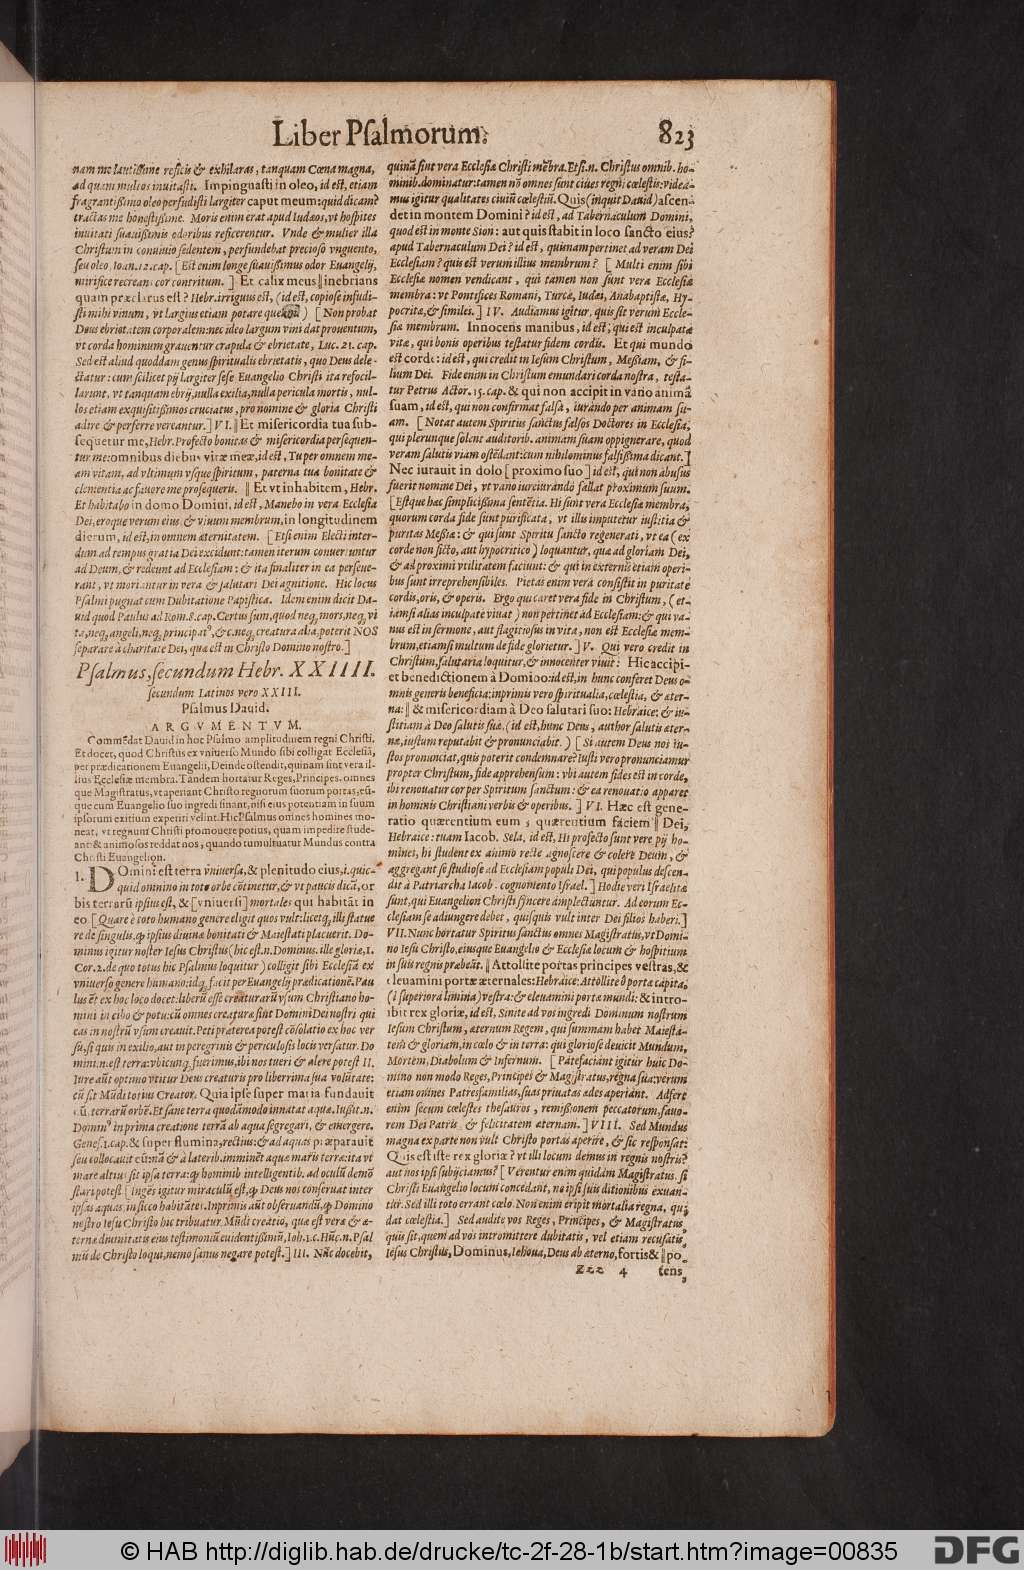 Liber Psalmorum. 823
nam me lautissime reficis & exhilaras, tanquam Cœna magna,
ad quam multos inuitasti. Impinguasti in oleo, id est, etiam
fragrantissimo oleo perfudisti largiter caput meum: quid dicam?
tractas me honestissime. Moris enim erat apud Iudæos, vt hospites
inuitati suauissimis odoribus reficerentur. Vnde & mulier illa
Christum in conuiuio sedentem, perfundebat precioso vnguento,
seu oleo, Ioan. 12. cap. [Est enim longe suauissimus odor Euangelij,
mirifice recreans cor contritum.] Et calix meus ‖ inebrians
quam præclarus est? Hebr. irriguus est, (id est, copiose infudi-
sti mihi vinum, vt largius etiam potare queam) [Non probat
Deus ebrietatem corporalem: nec ideo largum vini dat prouentum,
vt corda hominum grauentur crapula & ebrietate, Luc. 21. cap.
Sed est aliud quoddam genus spiritualis ebrietatis, quo Deus dele-
ctatur: cum scilicet pij largiter sese Euangelio Christi ita refocil-
larunt, vt tanquam ebrij, nulla exilia, nulla pericula mortis, nul-
los etiam exquisitissimos cruciatus, pro nomine & gloria Christi
adire & perferre vereantur.] VI. ‖ Et misericordia tua sub-
sequetur me, Hebr. Profecto bonitas & misericordia persequen-
tur me: omnibus diebus vitæ meæ, id est, Tu per omnem me-
am vitam, ad vltimum vsque spiritum, paterna tua bonitate &
clementia ac fauere me prosequeris. ‖ Et vt inhabitem, Hebr.
Et habitabo in domo Domini, id est, Manebo in vera Ecclesia
Dei, eroque verum eius & viuum membrum, in longitudinem
dierum, id est, in omnem æternitatem. [Etsi enim Electi inter-
dum ad tempus gratia Dei excidunt: tamen iterum conuertuntur
ad Deum, & redeunt ad Ecclesiam: & ita finaliter in ea perseue-
rant, vt moriantur in vera & salutari Dei agnitione. Hic locus
Psalmi pugnat cum Dubitatione Papistica. Idem enim dicit Da-
uid quod Paulus ad Rom. 8. cap. Certus sum, quod neq; mors, neq; vi
ta, neq; angeli, neq; principatꝰ, & c. neq; creatura alia, poterit NOS
separare à charitate Dei, quæ est in Christo Domino nostro.]
Psalmus, secundum Hebr. XXIIII.
secundum Latinos vero XXIII.
Psalmus Dauid.
ARGVMENTVM.
Commẽdat Dauid in hoc Psalmo amplitudinem regni Christi.
Et docet, quod Christus ex vniuerso Mundo sibi colligat Ecclesiã,
per prædicationem Euangelii, Deinde ostendit, quinam sint vera il-
lius Ecclesiæ membra. Tandem hortatur Reges, Principes, omnes
que Magistratus, vt aperiant Christo regnorum suorum portas, eũ-
que cum Euangelio suo ingredi sinant, nisi eius potentiam in suum
ipsorum exitium experiri velint. Hic Psalmus omnes homines mo-
neat, vt regnum Christi promouere potius, quam impedire stude-
ant: & animosos reddat nos, quando tumultuatur Mundus contra
Christi Euangelion.
I. DOmini est terra vniuersa, & plenitudo eius, i. quic-
quid omnino in toto orbe cõtinetur, & vt paucis dicã, or
bis terrarũ ipsius est, & [vniuersi] mortales qui habitãt in
eo [Quare è toto humano genere eligit quos vult: licetq; illi statue
re de singulis, qꝫ ipsius diuinæ bonitati & Maiestati placuerit. Do-
minus igitur noster Iesus Christus (hic est. n. Dominus. ille gloriæ, 1.
Cor. 2. de quo totus hic Psalmus loquitur) colligit sibi Ecclesiã ex
vniuerso genere humano: idq; facit per Euangelij prædicationẽ. Pau
lus ẽt ex hoc loco docet: liberũ esse creaturarũ vsum Christiano ho-
mini in cibo & potu: cũ omnes creaturæ sint Domini Dei nostri qui
eas in nostrũ vsum creauit. Peti præterea potest cõsolatio ex hoc ver
su, si quis in exilio, aut in peregrinis & periculosis locis versatur. Do
mini. n. est terra: vbicunq; fuerimus, ibi nos tueri & alere potest II.
Iure aũt optimo vtitur Deus creaturis pro liberrima sua volũtate:
cũ sit Mũdi totius Creator. Quia ipse super maria fundauit
eũ. terrarũ orbẽ. Et sane terra quodãmodo innatat aquæ. Iussit. n.
Dominꝰ in prima creatione terrã ab aqua segregari, & emergere.
Genes. 1. cap. & super flumina, rectius: & ad aquas præparauit
seu collocauit eũ: nã & à laterib. imminẽt aquæ maris terræ: ita vt
mare altius sit ipsa terra: qꝫ hominib. intelligentib. ad oculũ demõ
strari potest [Ingẽs igitur miraculũ est, qꝫ Deus nos conseruat inter
ipsas aquas, in sicco habitãtes. Inprimis aũt obseruandũ, qꝫ Domino
nostro Iesu Christo hic tribuatur Mũdi creatio, quæ est veræ & æ-
ternæ diuinitatis eius testimoniũ euidentissimũ, Ioh. 1. c. Hũc. n. Psal
mũ de Christo loqui, nemo sanus negare potest.] III. Nũc docebit,
quinã sint vera Ecclesiæ Christi mẽbra. Etsi. n. Christus omnib. ho-
minib. dominatur: tamen nõ omnes sunt ciues regni cœlestis: videa-
mus igitur qualitates ciuiũ cœlestiũ. Quis (inquit Dauid) ascen-
det in montem Domini? id est, ad Tabernaculum Domini,
quod est in monte Sion: aut quis stabit in loco sancto eius?
apud Tabernaculum Dei? id est, quinam pertinet ad veram Dei
Ecclesiam? quis est verum illius membrum? [Multi enim sibi
Ecclesiæ nomen vendicant, qui tamen non sunt vera Ecclesiæ
membra: vt Pontifices Romani, Turcæ, Iudæi, Anabaptistæ, Hy-
pocritæ, & similes.] IV. Audiamus igitur, quis sit verum Eccle-
siæ membrum. Innocens manibus, id est, qui est inculpatæ
vitæ, qui bonis operibus testatur fidem cordis. Et qui mundo
est corde: id est, qui credit in Iesum Christum, Messiam, & fi-
lium Dei. Fide enim in Christum emundari corda nostra, testa-
tur Petrus Actor. 15. cap. & qui non accipit in vano animã
suam, id est, qui non confirmat falsa, iurando per animam su-
am. [Notat autem Spiritus sanctus falsos Doctores in Ecclesia,
qui plerunque solent auditorib. animam suam oppignerare, quod
veram salutis viam ostẽdãt: cum nihilominus falsissima dicant.]
Nec iurauit in dolo [proximo suo] id est, qui non abusus
fuerit nomine Dei, vt vano iureiurando fallat proximum suum.
[Estque hæc simplicissima sentẽtia. Hi sunt vera Ecclesiæ membra,
quorum corda fide sunt purificata, vt illis imputetur iustitia &
puritas Messiæ: & qui sunt Spiritu sancto regenerati, vt ea (ex
corde non ficto, aut hypocritico) loquantur, quæ ad gloriam Dei,
& ad proximi vtilitatem faciunt: & qui in externis etiam operi-
bus sunt irreprehensibiles. Pietas enim vera consistit in puritate
cordis, oris, & operis. Ergo qui caret vera fide in Christum, (et-
iamsi alias inculpate viuat) non pertinet ad Ecclesiam: & qui va-
nus est in sermone, aut flagitiosus in vita, non est Ecclesiæ mem-
brum, etiamsi multum de fide glorietur.] V. Qui vero credit in
Christum, salutaria loquitur, & innocenter viuit: Hic accipi-
et benedictionem à Domino: id est, in hunc conferet Deus o-
mnis generis beneficia: inprimis vero spiritualia, cœlestia, & æter-
na: ‖ & misericordiam à Deo salutari suo: Hebraice: & iu-
stitiam à Deo salutis suæ, (id est, hunc Deus, author salutis æter-
næ, iustum reputabit & pronunciabit.) [Si autem Deus nos iu-
stos pronunciat, quis poterit condemnare? Iusti vero pronunciamur
propter Christum, fide apprehensum: vbi autem fides est in corde,
ibi renouatur cor per Spiritum sanctum: & ea renouatio apparet
in hominis Christiani verbis & operibus.] VI. Hæc est gene-
ratio quærentium eum, quærentium faciem ‖ Dei,
Hebraice: tuam Iacob. Sela, id est, Hi profecto sunt vere pij ho-
mines, hi student ex animo recte agnoscere & colere Deum, &
aggregant se studiose ad Ecclesiam populi Dei, qui populus descen-
dit à Patriarcha Iacob. cognomento Israel.] Hodie veri Israelitæ
sunt, qui Euangelion Christi syncere amplectuntur. Ad eorum Ec-
clesiam se adiungere debet, quisquis vult inter Dei filios haberi.]
VII. Nunc hortatur Spiritus sanctus omnes Magistratus, vt Domi-
no Iesu Christo, eiusque Euangelio & Ecclesiæ locum & hospitium
in suis regnis præbeãt. ‖ Attollite portas principes vestras, &
eleuamini portæ æternales: Hebraice: Attollite ô portæ capita,
(i superiora limina) vestra: & eleuamini portæ mundi: & intro-
ibit rex gloriæ, id est, Sinite ad vos ingredi Dominum nostrum
Iesum Christum, æternum Regem, qui summam habet Maiesta-
tem & gloriam, in cœlo & in terra: qui gloriose deuicit Mundum,
Mortem, Diabolum & Infernum. [Patefaciant igitur huic Do-
mino non modo Reges, Principes & Magistratus, regna sua: verum
etiam omnes Patresfamilias, suas priuatas ædes aperiant. Adfert
enim secum cœlestes thesauros, remissionem peccatorum, fauo-
rem Dei Patris & felicitatem æternam.] VIII. Sed Mundus
magna ex parte non vult Christo portas aperire, & sic responsat:
Quis est iste rex gloriæ? vt illi locum demus in regnis nostris?
aut nos ipsi subijciamus? [Verentur enim quidam Magistratus, si
Christi Euangelio locum concedant, ne ipsi suis ditionibus exuan-
tur. Sed illi toto errant cœlo. Non enim eripit mortalia regna, qui
dat cœlestia.] Sed audite vos Reges, Principes, & Magistratus
quis sit, quem ad vos intromittere dubitatis, vel etiam recusatis,
Iesus Christus, Dominus, Iehoua, Deus ab æterno, fortis & ‖ po-
Zzz 4 tens,
© HAB http://diglib.hab.de/drucke/tc-2f-28-1b/start.htm?image=00835
DFG